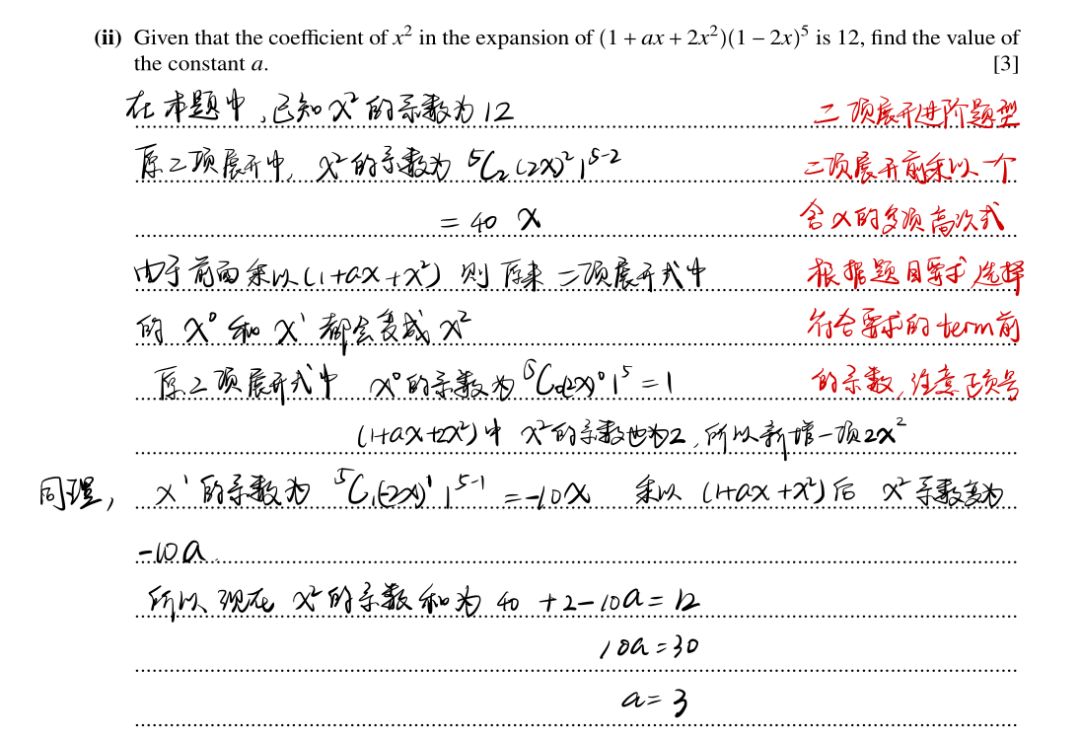 (ii) Given that the coefficient of x² in the expansion of (1 + ax + 2x²)(1 – 2x)⁵ is 12, find the value of
the constant a. [3]
在本题中,已知 x² 的系数为 12
二项展开进阶题型
原二项展开中, x² 的系数为 ⁵C₂ (-2x)² 1⁵⁻²
二项展开前乘以一个
= 40 x
含x的多项高次式
由于前面乘以(1+ax+x²) 则原来二项展开式中
根据题目要求选择
的 x⁰ 和 x¹ 都会变成 x²
符合要求的 term前
原二项展开式中 x⁰ 的系数为 ⁵C₀(-2x)⁰ 1⁵ = 1
的系数,注意正负号
(1+ax+2x²) 中 x² 的系数也为2,所以新增一项2x²
同理, x¹ 的系数为 ⁵C₁(-2x)¹ 1⁵⁻¹ = -10x 乘以 (1+ax+x²) 后 x² 系数变为
-10a
所以现在 x² 的系数和为 40 + 2 - 10a = 12
10a = 30
a = 3